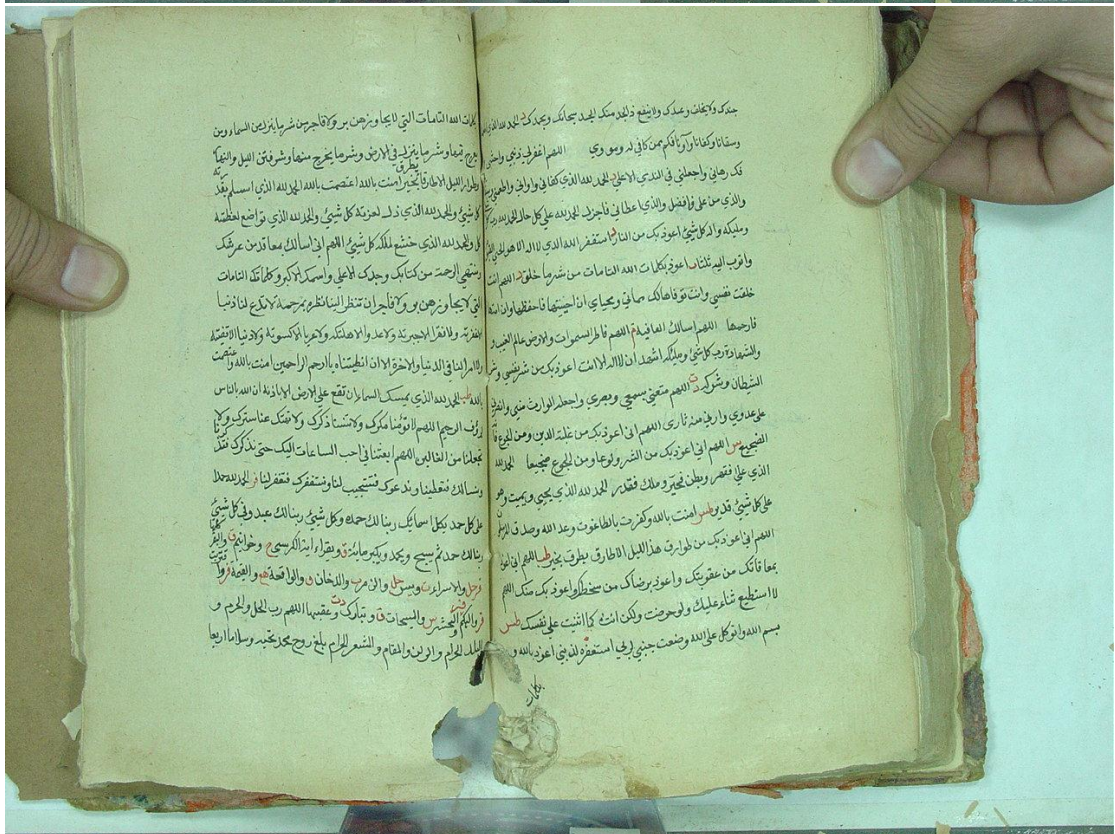 جندك ولا يخلف وعدك ولا ينفع ذا الجد منك الجد سبحانك وبحمدك د الحمد لله الذي
وسقانا وكفانا وآوانا فكم ممن لا كافي له ولا مووي اللهم اغفر لي ذنبي واخسئ
فك رهاني واجعلني في الندي الاعلى د الحمد لله الذي كفاني وآواني واطعمني
والذي من علي فافضل والذي اعطاني فاجزل الحمد لله على كل حال الحمد لله رب
ومليكه واله كل شيئ اعوذ بك من النار استغفر الله الذي لا اله الا هو الحي
واتوب اليه ثلثا اعوذ بكلمات الله التامات من شر ما خلق اللهم انت
خلقت نفسي وانت توفاها لك مماتها ومحياها ان احييتها فاحفظها وان امتها
فارحمها اللهم اسالك العافية م اللهم فاطر السموات والارض عالم الغيب و
والشهادة رب كل شيئ ومليكه اشهد ان لا اله الا انت اعوذ بك من شر نفسي وشر
الشيطان وشركه دت اللهم متعني بسمعي وبصري واجعله الوارث مني وانصرني
على عدوي وارني منه ثاري اللهم اني اعوذ بك من غلبة الدين ومن الجوع فانه
الضجيع س اللهم اني اعوذ بك من الشر ولوعا ومن الجوع ضجيعا الحمد لله
الذي علا فقهر وبطن فخبر وملك فقدر الحمد لله الذي يحيي ويميت وهو
على كل شيئ قدير طس امنت بالله وكفرت بالطاغوت وعد الله وصدق المرسلون
اللهم اني اعوذ بك من طوارق هذا الليل الا طارق يطرق بخير طب اللهم اني اعوذ
بمعافاتك من عقوبتك واعوذ برضاك من سخطك واعوذ بك منك اللهم
لا استطيع ثناء عليك ولو حرصت ولكن انت كما اثنيت على نفسك طس
بسم الله واتوكل على الله وضعت جنبي لربي استغفره لذنبي اعوذ بالله و
بكلمات
بكلمات الله التامات التي لا يجاوزهن بر ولا فاجر من شر ما ينزل من السماء ومن
يعرج فيها وشر ما ينزل في الارض وشر ما يخرج منها وشر فتن الليل والنهار
وطوارق الليل الا طارقا يطرق بخير امنت بالله اعتصمت بالله الحمد لله الذي استسلم لقدرته
كل شيئ والحمد لله الذي ذل لعزته كل شيئ والحمد لله الذي تواضع لعظمته
كل والحمد لله الذي خشع لملكه كل شيئ اللهم اني اسالك بمعاقد من عرشك
ومنتهي الرحمة من كتابك وجدك الاعلى واسمك الاكبر وكلماتك التامات
التي لا يجاوزهن بر ولا فاجر ان تنظر الينا نظرة برحمة لا تدع لنا ذنبا
الا غفرته ولا فقرا الا جبرته ولا عدوا الا اهلكته ولا عريا الا كسوته ولا دينا الا قضيته
ولا امرا لنا في الدنيا والاخرة الا ان اعطيتناه يا ارحم الراحمين امنت بالله واعتصمت
بالله طب الحمد لله الذي يمسك السماء ان تقع على الارض الا باذنه ان الله بالناس
لرؤف الرحيم اللهم لا تؤمنا مكرك ولا تنسنا ذكرك ولا تهتك عنا سترك ولا
تجعلنا من الغافلين اللهم ابعثنا في احب الساعات اليك حتى نذكرك فتذكرنا
ونسالك فتعطينا وندعوك فتستجيب لنا ونستغفرك فتغفر لنا فر الحمد لله حمدا
على كل حمد بكل اسمائك ربنا لك حمد وكل شيئ ربنا لك عبد وفي كل شيئ
ربنا لك حمد ثم يسبح ويحمد ويكبر مائة ق ويقراء اية الكرسي خ وخواتيم البقرة
فر حل والاسراء ت ويس حل والزمر ب والدخان ق والواقعة هو والقيمة فر وا
فر والهكم والحشر س والمسبحات ق و تبارك دت وعقبيها اللهم رب الحل والحرم و
البلد الحرام والركن والمقام و المشعر الحرام بلغ روح محمد تحية وسلاما اربعا